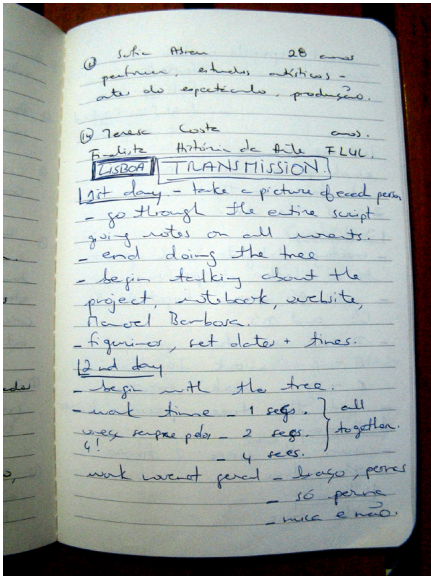 Sofia Abreu 28 anos
performer, estudos artísticos -
artes do espectáculo, produção.
Teresa Costa anos.
Finalista História da Arte FLUL.
LISBOA TRANSMISSION.
1st day - take a picture of each person
- go through the entire script
giving notes on all
- end doing the tree
- begin talking about the
project, notebook, website,
Manoel Barbosa.
- figurinos, set dates + times.
2nd day
- begin with the tree.
- work time - 1 segs. } all
sempre pelos - 2 segs. together.
4! - 4 secs.
work geral - braço, pernas
- só perna
- nuca e mão.